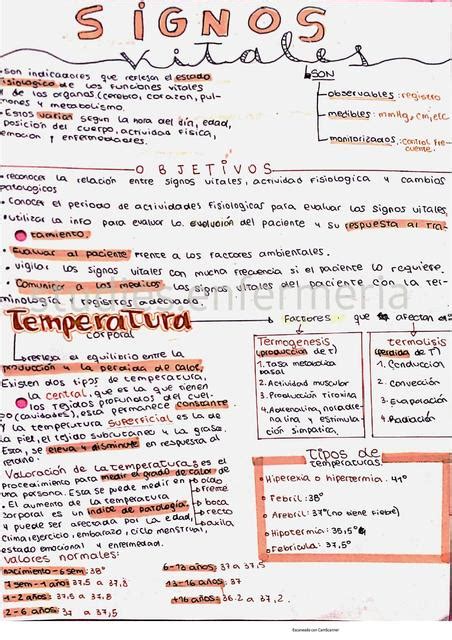 SIGNOS
vitales
• Son indicadores que reflejan el estado
fisiologico de los funciones vitales
y de los organos (cerebro, corazon, pul-
mones y metabolismo.
• Estos varias segun la hora del día, edad,
posicion del cuerpo, actividad fisica,
emocion y enfermedades.
SON
observables: registro
medibles: mmHg, cm, etc
monitorizados: control fre
cuente.
OBJETIVOS
• reconocer la relación entre signos vitales, actividad fisiologica y cambios
patologicos
• Conocer el periodo de actividades fisiologicas para evaluar los signos vitales
• utilizar la info para evaluar la evolución del paciente y su respuesta al tra-
tamiento.
• Evaluar al paciente frente a los factores ambientales.
• vigilar los signos vitales con mucha frecuencia si el paciente lo requiere.
• Comunicar a los medicos los signos vitales del paciente con la ter-
minologia y registros adecuado.
enfermeria
Temperatura
corporal
reflejo el equilibrio entre la
producción y la perdida de calor.
Existen dos tipos de temperatura,
la central, que es la que tienen
los tejidos profundos del cuer-
po (cavidades), esta permanece constante
y la temperatura superficial es la de
la piel, el tejido subcutaneo y la grasa.
Esta, se eleva y disminute en respuesta al
Factores que afectan a:
Termogenesis
(producción de t)
1. Tasa metabolica
basal
2. Actividad muscular
3. Producción tiroxina
4. Adrenalina, noradre
nalina y estimulación
simpatica.
termolisis
(perdida de T)
1. Conducción
2. Convección
3. Evaporación
4. Radiación
Valoración de la temperatura: es el
Procedimiento para medir el grado de calor de
una persona. Esta se puede medir en
oido
frente
boca
recto
axila
• El aumento de la temperatura
corporal es un indice de patología,
y puede ser afectada por la edad,
clima, ejercicio, embarazo, ciclo menstrual,
estado emocional y enfermedad.
Tipos de
temperaturas
• Hiperexia o hipertermia. 41°
• Febril: 38°
• Afebril: 37° (no tiene fiebre)
• Hipotermia: 35,5°
• Febricula: 37,5°
Valores normales:
nacimiento - 6 sem: 38°
7 sem - 1 año: 37,5 a 37,8
1 - 2 años: 37,5 a 37,8
2 - 6 años: 37 a 37,5
6 - 13 años: 37 a 37,5
13 - 16 años: 37
+16 años: 36.2 a 37.2.
Escaneado con CamScanner